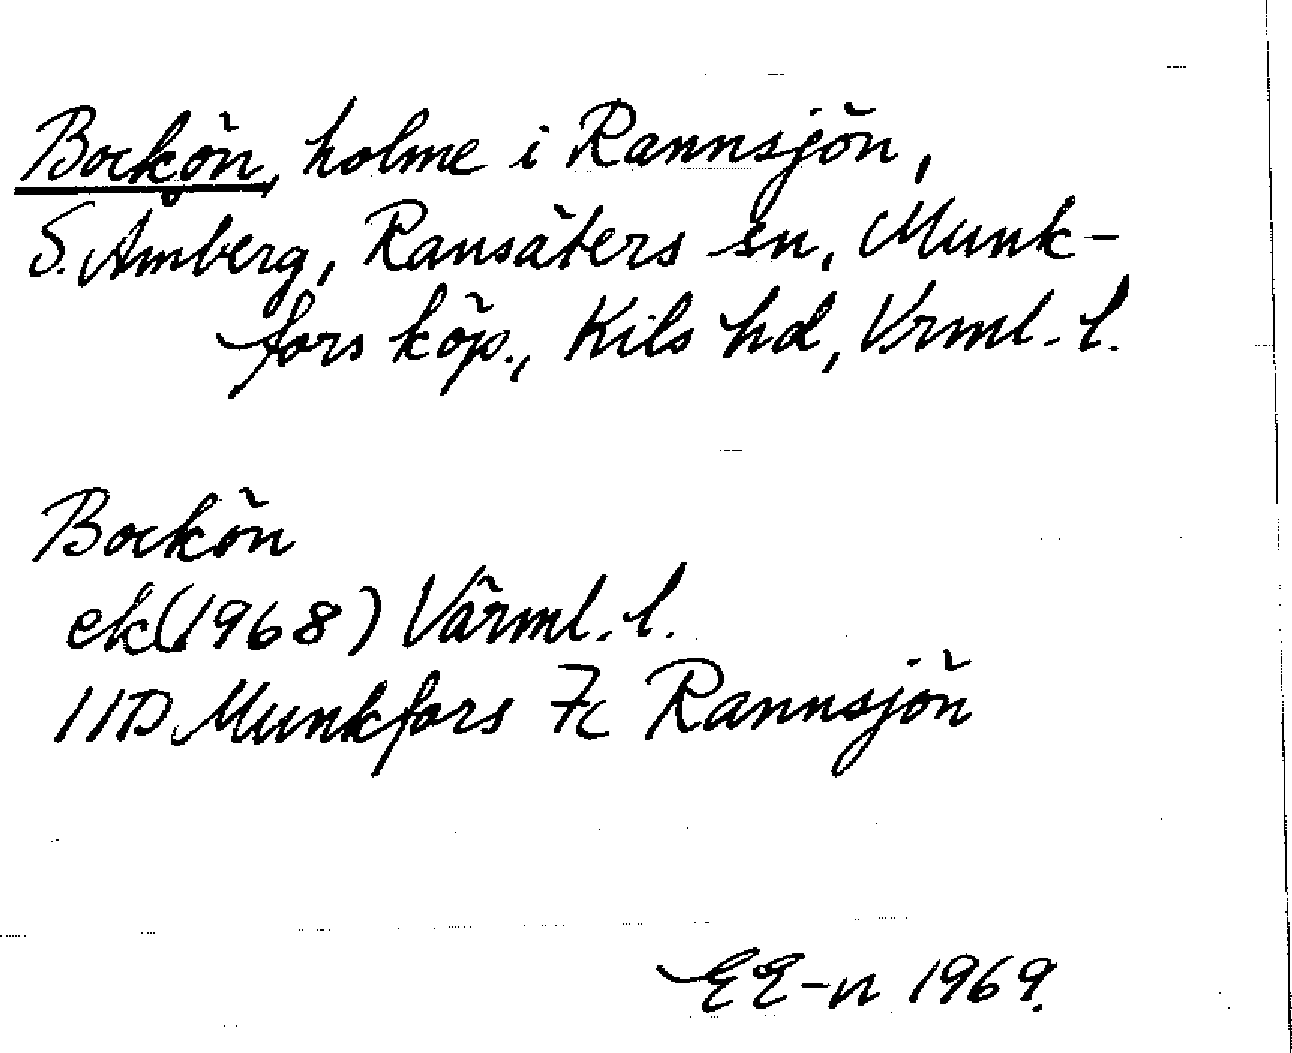 Bockön, holme i Rannsjön,
S. Åmberg, Ransäters sn, Munk-
fors köp., Kils hd, Vrml. l.
Bockön
ek (1968) Värml. l.
11D Munkfors 7c Rannsjön
EE-n 1969.